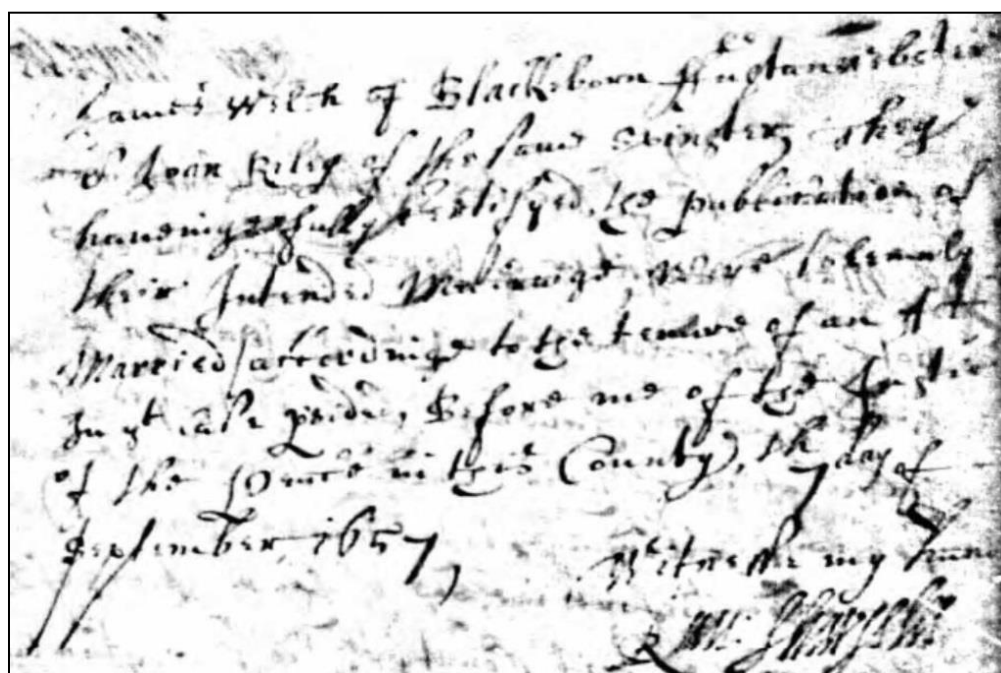 James Welch of Blackborn
Joan Riley of the same Spinster, they
haveinge fully Certifyed the publication of
their Intended Marriage were solemnly
Married accordinge to the tenure of an Act
In yt case Before me of the Justic
of the Peace in this County, 7th day of
September, 1657
Witnesse my han